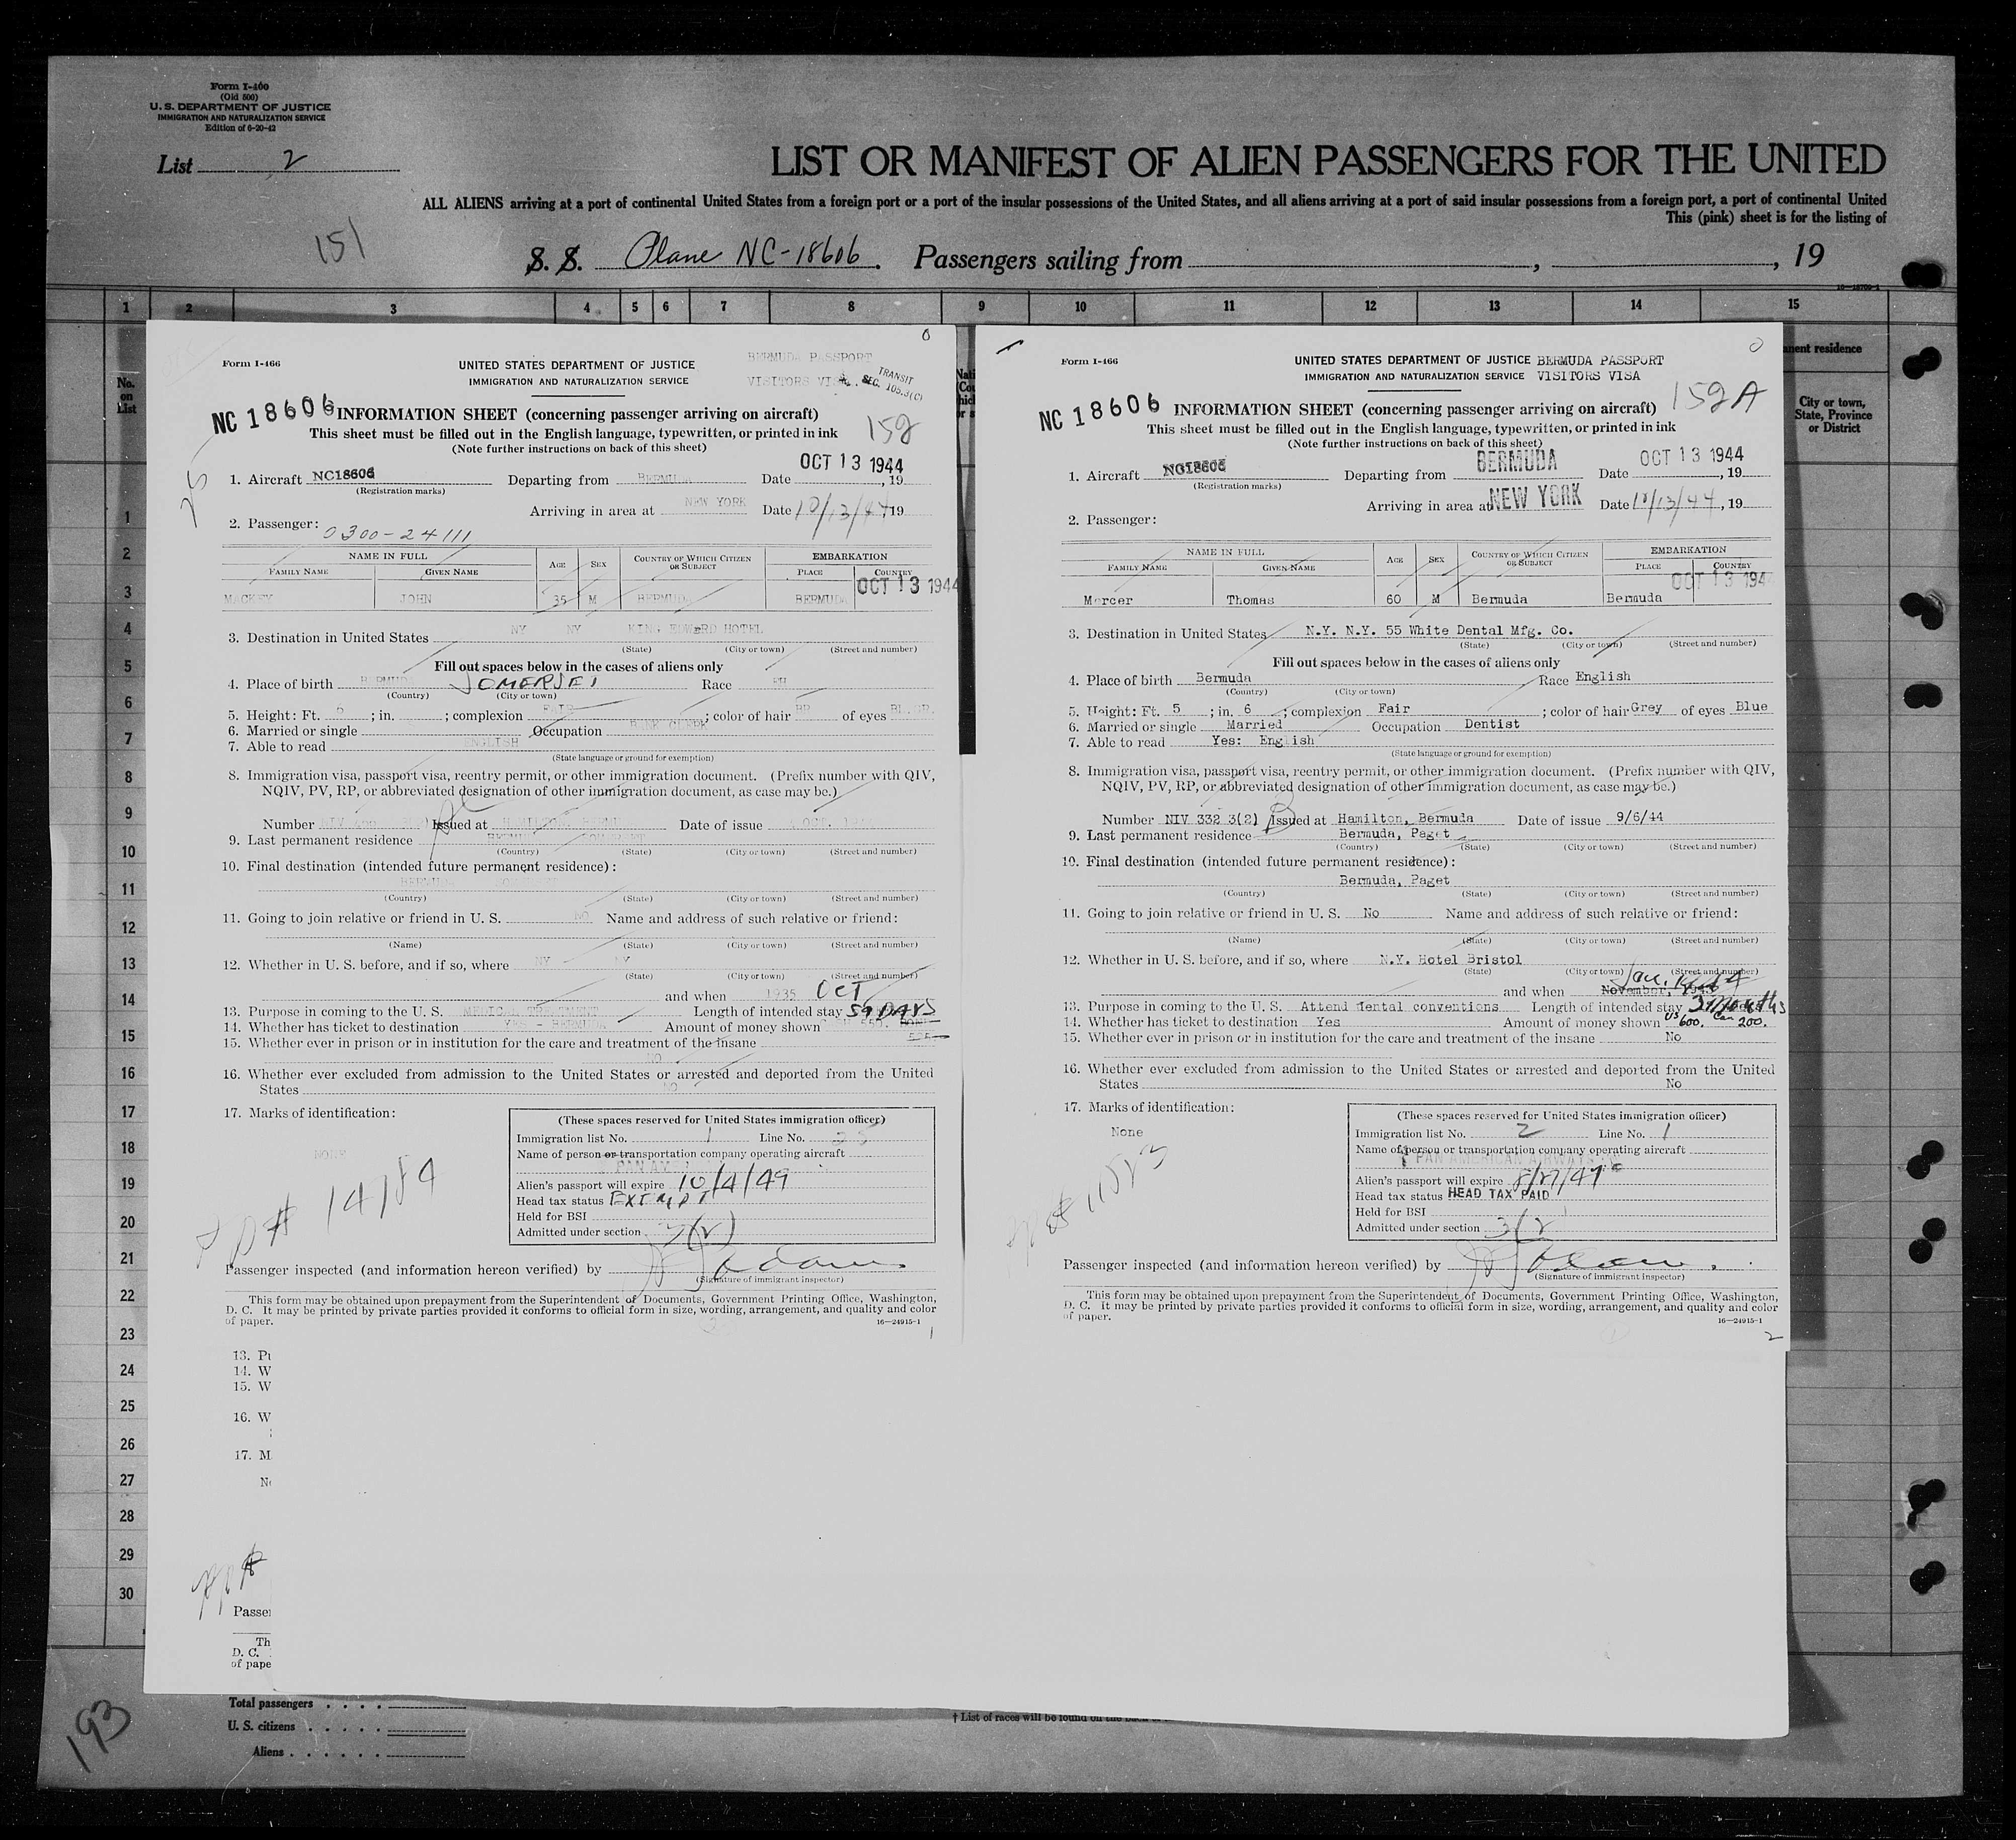 Form I-460
(Old 500)
U. S. DEPARTMENT OF JUSTICE
IMMIGRATION AND NATURALIZATION SERVICE
Edition of 6-20-42
List 2
LIST OR MANIFEST OF ALIEN PASSENGERS FOR THE UNITED
ALL ALIENS arriving at a port of continental United States from a foreign port or a port of the insular possessions of the United States, and all aliens arriving at a port of said insular possessions from a foreign port, a port of continental United
This (pink) sheet is for the listing of
151
S. S. Plane NC-18606. Passengers sailing from , , 19
1 2 3 4 5 6 7 8 9 10 11 12 13 14 15
No. on List
nent residence
City or town, State, Province or District
Form I-466
UNITED STATES DEPARTMENT OF JUSTICE
IMMIGRATION AND NATURALIZATION SERVICE
BERMUDA PASSPORT
VISITORS VISA. SEC. 105.3(C) TRANSIT
NC 18606 INFORMATION SHEET (concerning passenger arriving on aircraft)
This sheet must be filled out in the English language, typewritten, or printed in ink
(Note further instructions on back of this sheet)
159
OCT 13 1944
1. Aircraft NC18606 Departing from BERMUDA Date , 19
(Registration marks)
Arriving in area at NEW YORK Date 10/13/44 19
2. Passenger: 0300-24111
NAME IN FULL AGE SEX COUNTRY OF WHICH CITIZEN OR SUBJECT EMBARKATION
FAMILY NAME GIVEN NAME PLACE COUNTRY
OCT 13 1944
MACKEY JOHN 35 M BERMUDA BERMUDA
3. Destination in United States NY NY KING EDWERD HOTEL
(State) (City or town) (Street and number)
Fill out spaces below in the cases of aliens only
4. Place of birth BERMUDA SOMERSET Race
(Country) (City or town)
5. Height: Ft. ; in. ; complexion FAIR ; color of hair BR of eyes
6. Married or single Occupation BANK CLERK
7. Able to read ENGLISH
(State language or ground for exemption)
8. Immigration visa, passport visa, reentry permit, or other immigration document. (Prefix number with QIV,
NQIV, PV, RP, or abbreviated designation of other immigration document, as case may be.)
Number Issued at HAMILTON Date of issue
9. Last permanent residence BERMUDA SOMERSET
(Country) (State) (City or town) (Street and number)
10. Final destination (intended future permanent residence):
BERMUDA SOMERSET
(Country) (State) (City or town) (Street and number)
11. Going to join relative or friend in U. S. NO Name and address of such relative or friend:
(Name) (State) (City or town) (Street and number)
12. Whether in U. S. before, and if so, where NY NY
(State) (City or town) (Street and number)
and when 1935 OCT
13. Purpose in coming to the U. S. MEDICAL TREATMENT Length of intended stay 59 DAYS
14. Whether has ticket to destination YES - BERMUDA Amount of money shown
15. Whether ever in prison or in institution for the care and treatment of the insane
NO
16. Whether ever excluded from admission to the United States or arrested and deported from the United
States NO
17. Marks of identification:
NONE
(These spaces reserved for United States immigration officer)
Immigration list No. 1 Line No. 25
Name of person or transportation company operating aircraft
PAN AM
Alien's passport will expire 10/4/49
Head tax status EXEMPT
Held for BSI
Admitted under section 3(2)
14184
Passenger inspected (and information hereon verified) by
(Signature of immigrant inspector)
This form may be obtained upon prepayment from the Superintendent of Documents, Government Printing Office, Washington,
D. C. It may be printed by private parties provided it conforms to official form in size, wording, arrangement, and quality and color
of paper.
16—24915-1
1
Form I-466
UNITED STATES DEPARTMENT OF JUSTICE BERMUDA PASSPORT
IMMIGRATION AND NATURALIZATION SERVICE VISITORS VISA
NC 18606 INFORMATION SHEET (concerning passenger arriving on aircraft) 159A
This sheet must be filled out in the English language, typewritten, or printed in ink
(Note further instructions on back of this sheet)
OCT 13 1944
1. Aircraft NC18606 Departing from BERMUDA Date , 19
(Registration marks)
Arriving in area at NEW YORK Date 10/13/44, 19
2. Passenger:
NAME IN FULL AGE SEX COUNTRY OF WHICH CITIZEN OR SUBJECT EMBARKATION
FAMILY NAME GIVEN NAME PLACE COUNTRY
OCT 13 194
Mercer Thomas 60 M Bermuda Bermuda
3. Destination in United States N.Y. N.Y. 55 White Dental Mfg. Co.
(State) (City or town) (Street and number)
Fill out spaces below in the cases of aliens only
4. Place of birth Bermuda Race English
(Country) (City or town)
5. Height: Ft. 5 ; in. 6 ; complexion Fair ; color of hair Grey of eyes Blue
6. Married or single Married Occupation Dentist
7. Able to read Yes: English
(State language or ground for exemption)
8. Immigration visa, passport visa, reentry permit, or other immigration document. (Prefix number with QIV,
NQIV, PV, RP, or abbreviated designation of other immigration document, as case may be.)
Number NIV 332 3(2) Issued at Hamilton, Bermuda Date of issue 9/6/44
9. Last permanent residence Bermuda, Paget
(Country) (State) (City or town) (Street and number)
10. Final destination (intended future permanent residence):
Bermuda, Paget
(Country) (State) (City or town) (Street and number)
11. Going to join relative or friend in U. S. No Name and address of such relative or friend:
(Name) (State) (City or town) (Street and number)
12. Whether in U. S. before, and if so, where N.Y. Hotel Bristol
(State) (City or town) (Street and number)
and when November, Jan.
13. Purpose in coming to the U. S. Attend dental conventions Length of intended stay 3 Months
14. Whether has ticket to destination Yes Amount of money shown US 600. Can 200.
15. Whether ever in prison or in institution for the care and treatment of the insane No
16. Whether ever excluded from admission to the United States or arrested and deported from the United
States No
17. Marks of identification:
None
(These spaces reserved for United States immigration officer)
Immigration list No. 2 Line No. 1
Name of person or transportation company operating aircraft
PAN AMERICAN AIRWAYS
Alien's passport will expire 8/27/47
Head tax status HEAD TAX PAID
Held for BSI
Admitted under section 3(2)
Passenger inspected (and information hereon verified) by
(Signature of immigrant inspector)
This form may be obtained upon prepayment from the Superintendent of Documents, Government Printing Office, Washington,
D. C. It may be printed by private parties provided it conforms to official form in size, wording, arrangement, and quality and color
of paper.
16—24915-1
2
1
2
3
4
5
6
7
8
9
10
11
12
13
14
15
16
17
18
19
20
21
22
23
24
25
26
27
28
29
30
13. Pu
14. W
15. W
16. W
17. M
No
Passe
Th
D. C.
of pape
Total passengers
U. S. citizens
Aliens
† List of races will be found on the back
193